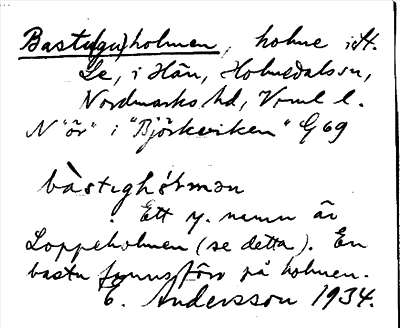 Bastu(gu)holmen, holme i St.
Le, i Hån, Holmedals sn,
Nordmarks hd, Vrml l.
N "ör" i "Björkviken" G 69
bàstighólmən
. Ett y. namn är
Loppeholmen (se detta). En
bastu fanns förr på holmen.
E. Andersson 1934.